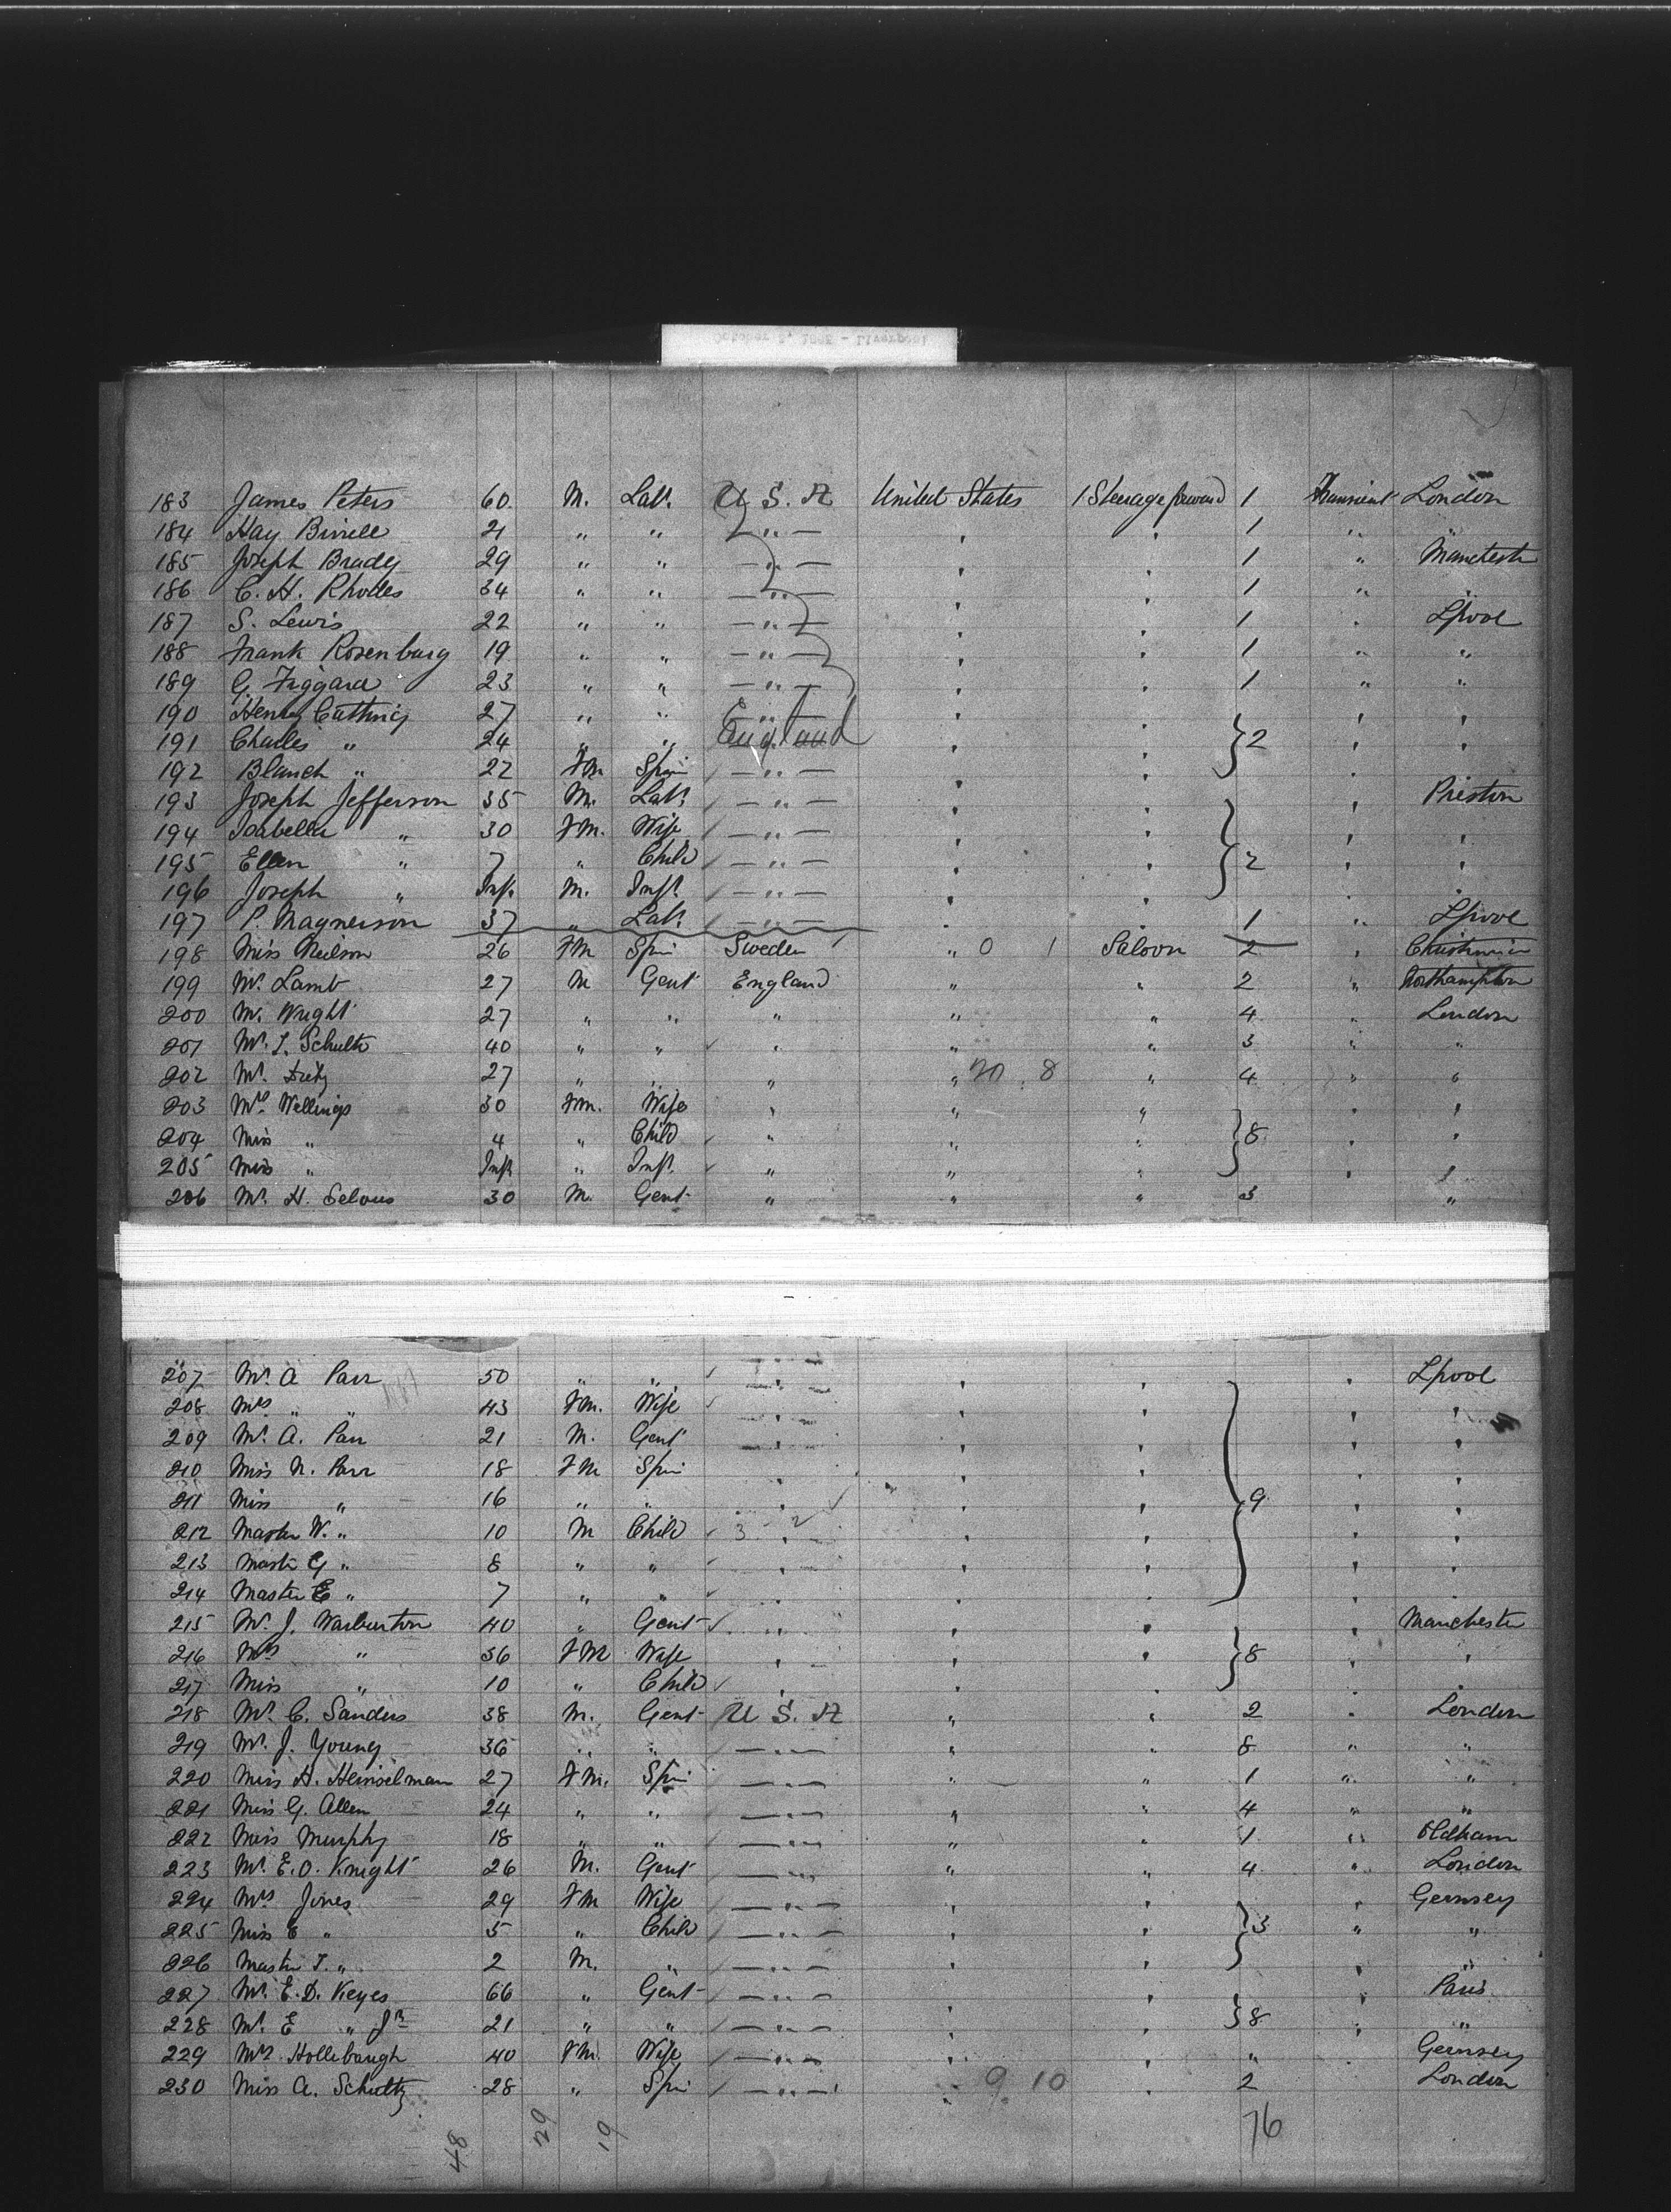 183 James Peters 60. M. Labr. U.S.A United States 1 Steerage forward 1 Transient London
184 Hay Birrell 21 " " — " — " " 1 " "
185 Joseph Brady 29 " " — " — " " 1 " Manchestr
186 C. H. Rhodes 34 " " — " — " " 1 " "
187 S. Lewis 22 " " — " — " " 1 " Lpool
188 Frank Rosenburg 19 " " — " — " " 1 " "
189 G. Figgard 23 " " — " — " " 1 " "
190 Henry Cattning 27 " " — " — " " " "
191 Charles " 24 " " England " " 2 " "
192 Blanch " 22 Fm Spin — " — " " " "
193 Joseph Jefferson 35 M. Labr. — " — " " " Preston
194 Isabella " 30 Fm. Wife — " — " " " "
195 Ellen " 7 " Child — " — " " 2 " "
196 Joseph " Inft. M. Inft. — " — " " "
197 P. Magnerson 37 " Labr. — " — " " 1 " Lpool
198 Miss Neilson 26 Fm Spin Sweden " 0 1 Saloon 2 " Christiania
199 Mr. Lamb 27 M Gent England " " 2 " Northampton
200 Mr. Wright 27 " " " " " 4 " London
201 Mr. I. Schultz 40 " " " " " 3 " "
202 Mr. 27 " " " " 20 8 " 4 " "
203 Mrs. Wellings 30 Fm. Wife " " " " "
204 Miss " 4 " Child " " " 8 " "
205 Miss " Inft " Inft. " " " " "
206 Mr. H. Selous 30 M. Gent " " " 3 "
207 Mr. A Parr 50 " " " " " " Lpool
208 Mrs " " 43 Fm. Wife " " " " "
209 Mr. A. Parr 21 M. Gent " " " " "
210 Miss N. Parr 18 Fm Spin " " " " "
211 Miss " 16 " " " " " 9 " "
212 Master W. " 10 M Child 3 2 " " " " "
213 Mastr G " 8 " " " " " " "
214 Master E " 7 " " " " " " "
215 Mr. J. Warburton 40 " Gent " " " " Manchester
216 Mrs " 36 FM Wife " " " 8 " "
217 Miss " 10 " Child " " " "
218 Mr. C. Sanders 38 M. Gent U.S.A " " 2 " London
219 Mr. J. Young 36 " " — " — " " 8 " "
220 Miss H. Heinselman 27 Fm. Spin — " — " " 1 " "
221 Miss G. Allen 24 " " — " — " " 4 " "
222 Miss Murphy 18 " " — " — " " 1 " Oldham
223 Mr. E. O. Knight 26 M. Gent — " — " " 4 " London
224 Mrs Jones 29 Fm Wife — " — " " " Gernsey
225 Miss E " 5 " Child — " — " " 3 " "
226 Mastr T. " 2 M. " — " — " " " "
227 Mr. E. D. Keyes 66 " Gent — " — " " " Paris
228 Mr. E " Jr 21 " " — " — " " 8 " "
229 Mrs Hollebaugh 40 Fm. Wife — " — " " " " Gernsey
230 Miss A. Schultz 28 " Spin — " — " 9 10 " 2 London
48 29 19 76